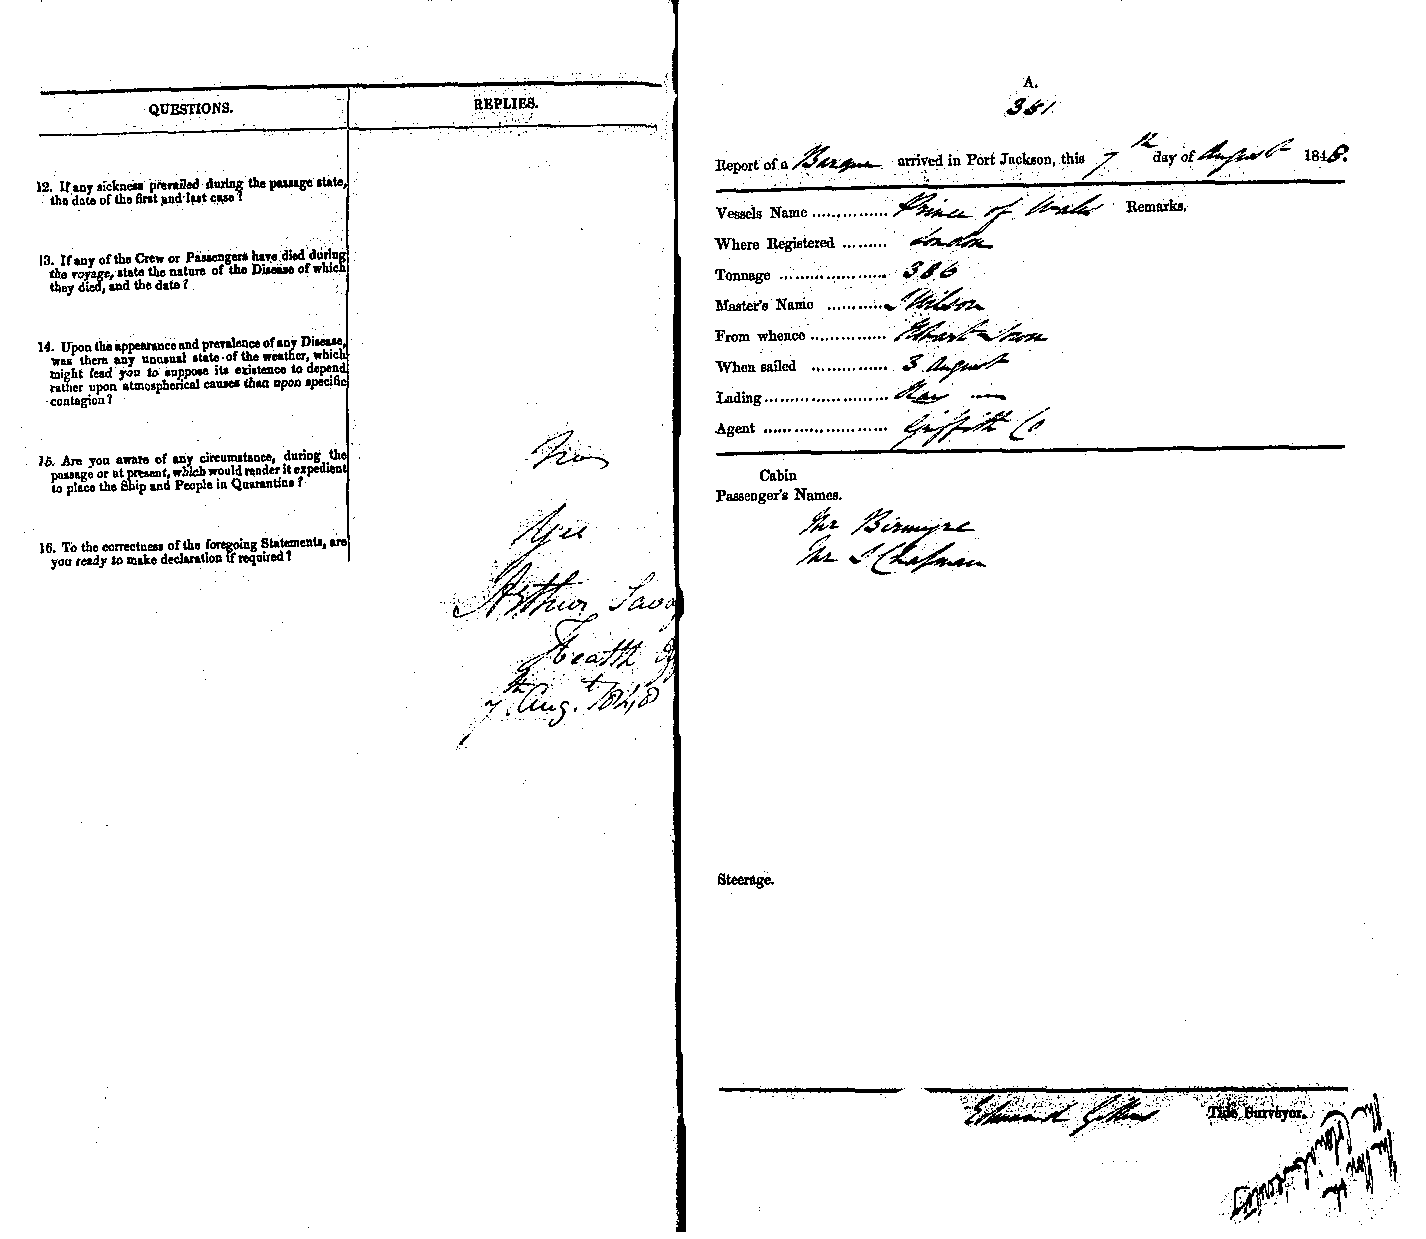 QUESTIONS.
REPLIES.
12. If any sickness prevailed during the passage state,
the date of the first and last case?
13. If any of the Crew or Passengers have died during
the voyage, state the nature of the Disease of which
they died, and the date?
14. Upon the appearance and prevalence of any Disease,
was there any unusual state of the weather, which
might lead you to suppose its existence to depend
rather upon atmospherical causes than upon specific
contagion?
15. Are you aware of any circumstance, during the
passage or at present, which would render it expedient
to place the Ship and People in Quarantine?
16. To the correctness of the foregoing Statements, are
you ready to make declaration if required?
Yes
Arthur Sava
Health
7th Augt. 1848
A.
381
Report of a Barque arrived in Port Jackson, this 7th day of August 1848.
Vessels Name .............. Prince of Wales Remarks.
Where Registered ......... London
Tonnage ..................... 386
Master's Name ........... J Wilson
From whence .............. Hobart Town
When sailed .............. 3 August
Lading.......................
Agent ....................... Griffith Co
Cabin
Passenger's Names.
Mr Birmyre
Mr J Chapman
Steerage.
Edward Tide Surveyor.